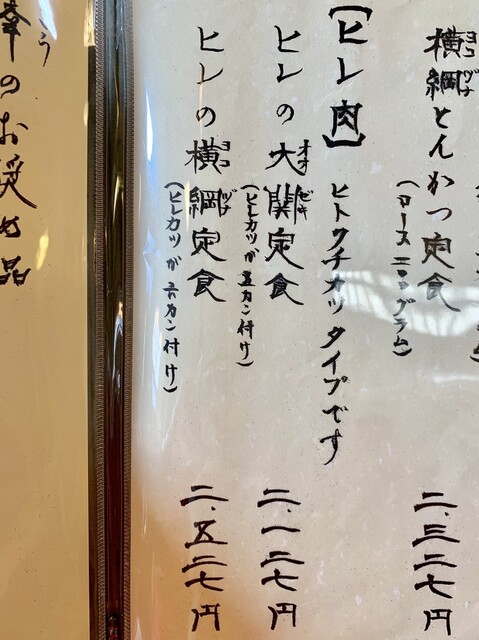 横綱とんかつ定食 二、三二七円
ヨコヅナ
(ロース三〇〇グラム)
【ヒレ肉】 ヒトクチカツタイプです
ヒレの大関定食 二、一二七円
オオゼキ
(ヒレカツが五カン付け)
ヒレの横綱定食 二、五二七円
ヨコヅナ
(ヒレカツが六カン付け)
のお奨め品